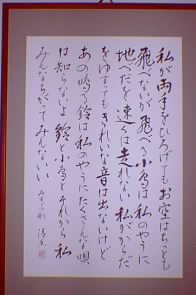 私が両手をひろげてもお空はちっとも
飛べないが飛べる小鳥は私のやうに
地べたを速くは走れない私がからだ
をゆすってもきれいな音は出ないけど
あの鳴る鈴は私のやうにたくさんな唄
は知らないよ鈴と小鳥とそれから私
みんなちがってみんないい